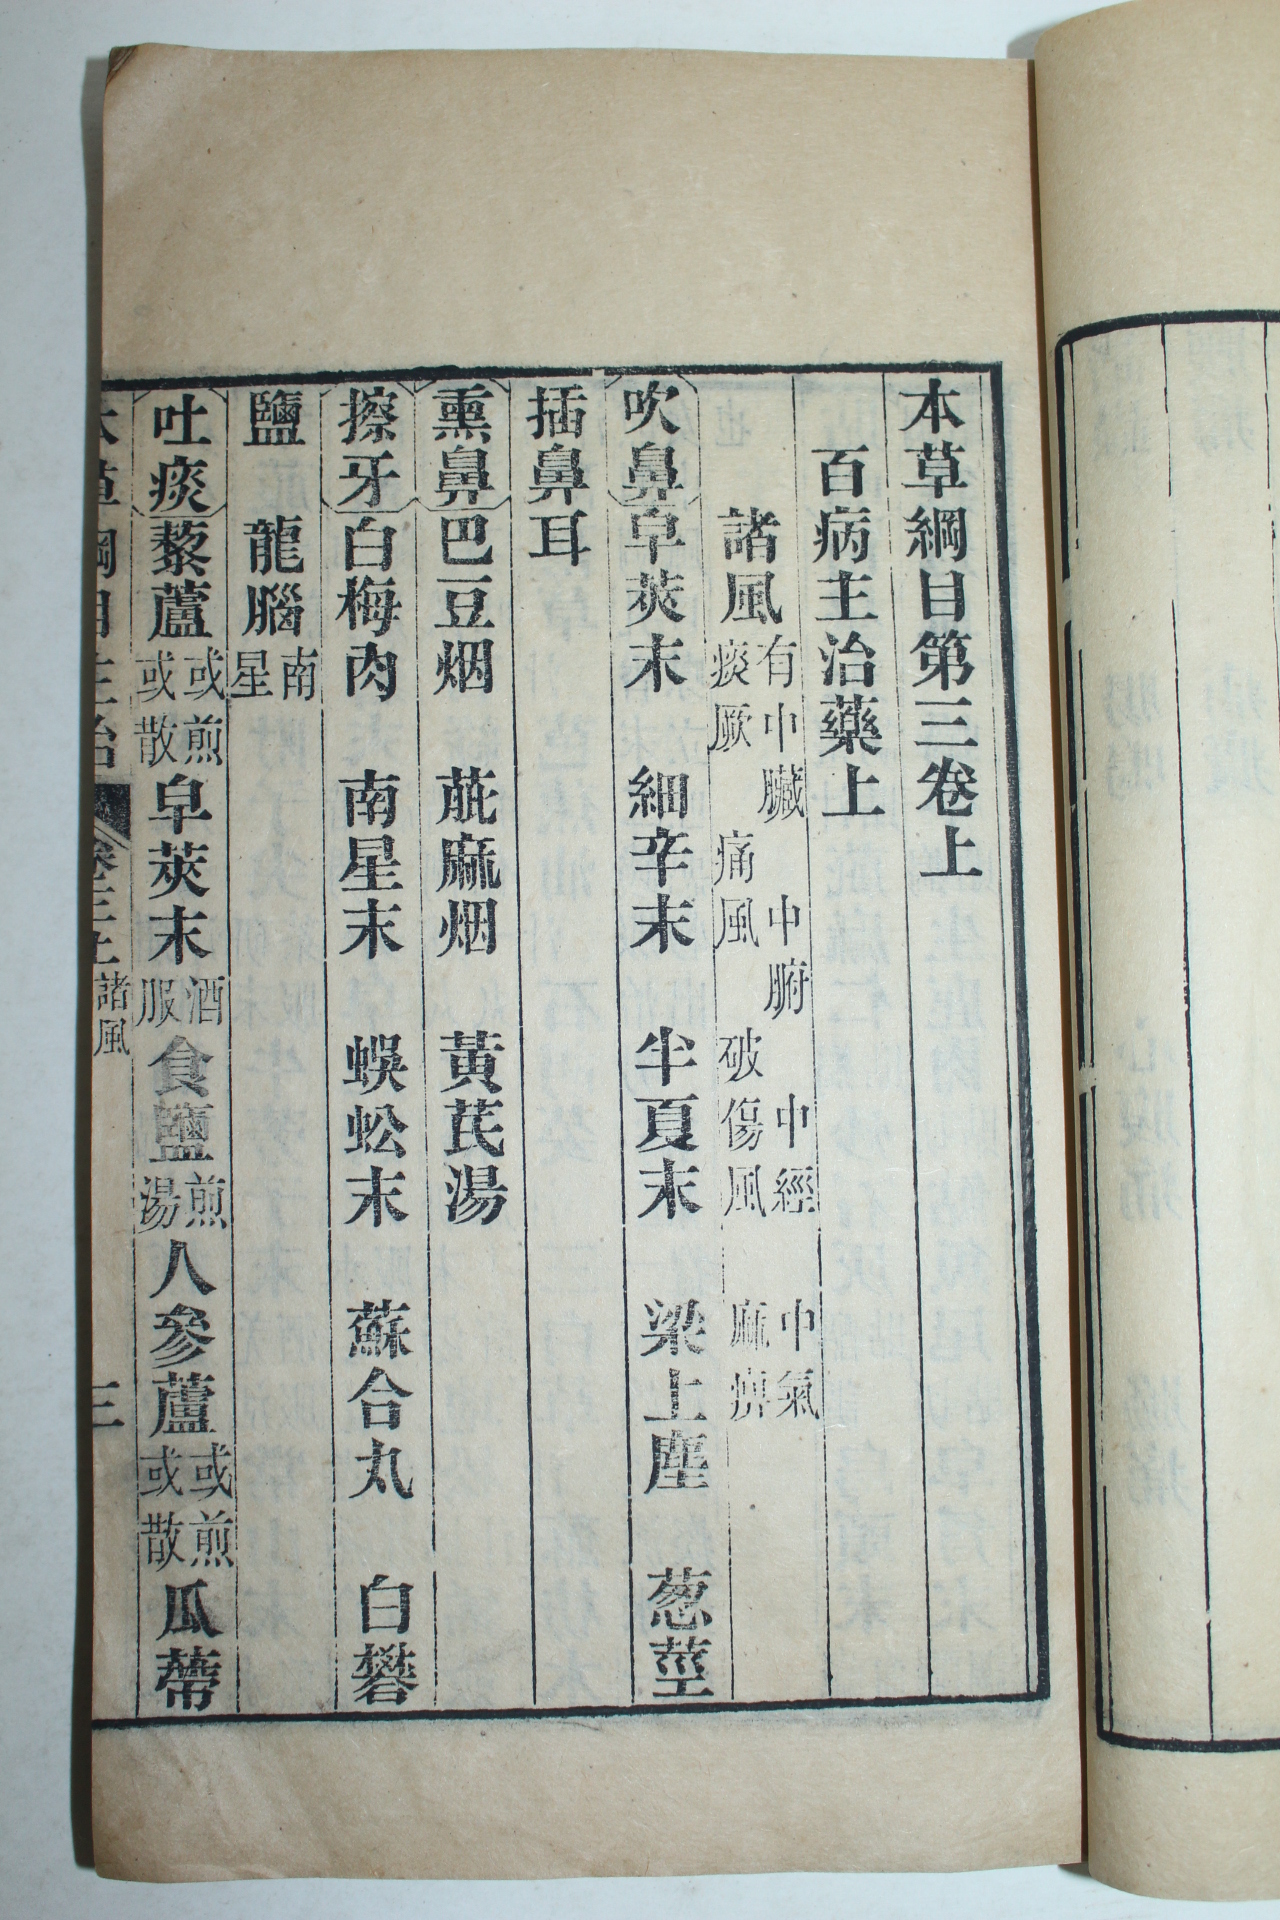 本草綱目第三卷上
百病主治藥上
諸風有中臟　中腑　中經　中氣
痰厥　痛風　破傷風　麻痹
吹鼻皁莢末　細辛末　半夏末　梁上塵　葱莖
插鼻耳
熏鼻巴豆烟　蓖麻烟　黃芪湯
擦牙白梅肉　南星末　蜈蚣末　蘇合丸　白礬
鹽　龍腦南星
吐痰藜蘆或煎或散皁莢末酒服食鹽煎湯人參蘆或煎或散瓜蒂
本草綱目主治　卷三上　諸風　三